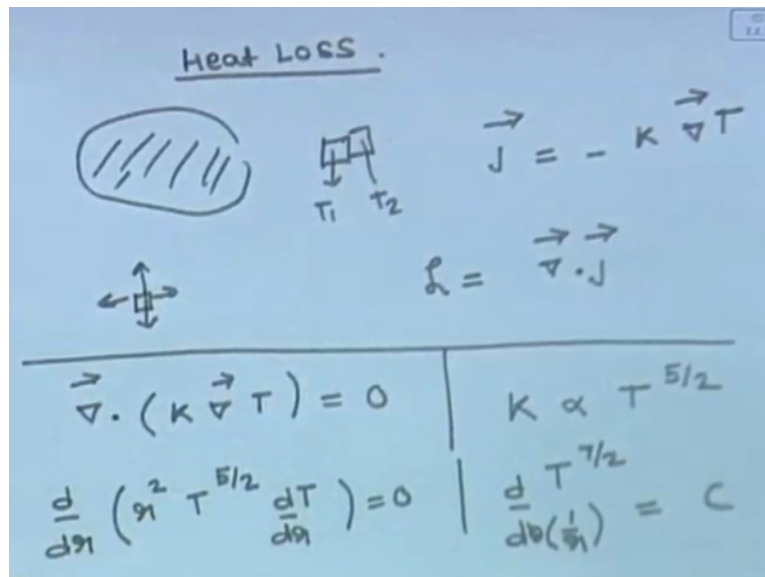 Heat Loss.
T₁ T₂
J⃗ = - K ∇⃗ T
ℒ = ∇⃗ · J⃗
∇⃗ · ( K ∇⃗ T ) = 0
K ∝ T^{5/2}
d/dr ( r² T^{5/2} dT/dr ) = 0
d T^{7/2} / d(1/r) = C